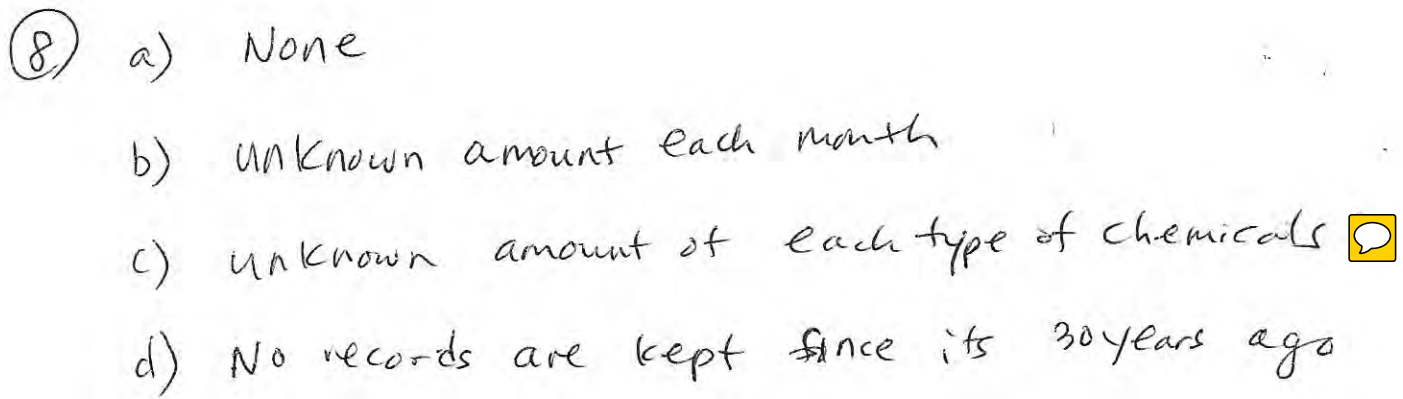 8 a) None
b) unknown amount each month
c) unknown amount of each type of chemicals
d) No records are kept since its 30 years ago